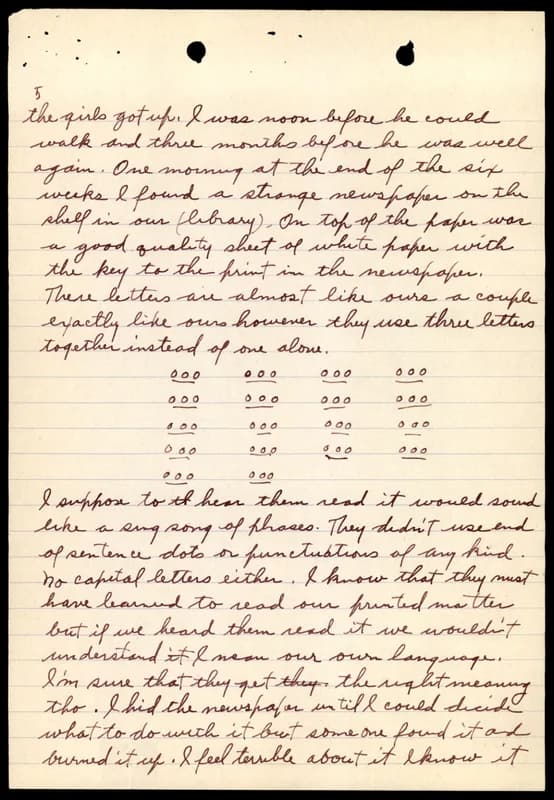 5
the girls got up. I was noon before he could
walk and three months before he was well
again. One morning at the end of the six
weeks I found a strange newspaper on the
shelf in our (library). On top of the paper was
a good quality sheet of white paper with
the key to the print in the newspaper.
There letters are almost like ours a couple
exactly like ours however they use three letters
together instead of one alone.
ooo ooo ooo ooo
ooo ooo ooo ooo
ooo ooo ooo ooo
ooo ooo ooo ooo
ooo ooo
I suppose to th hear them read it would sound
like a sing song of phrases. They didn't use end
of sentence dots or punctuations of any kind.
No capital letters either. I know that they must
have learned to read our printed matter
but if we heard them read it we wouldn't
understand it I mean our own language.
I'm sure that they get they the right meaning
tho. I hid the newspaper until I could decide
what to do with it but someone found it and
burned it up. I feel terrible about it I know it